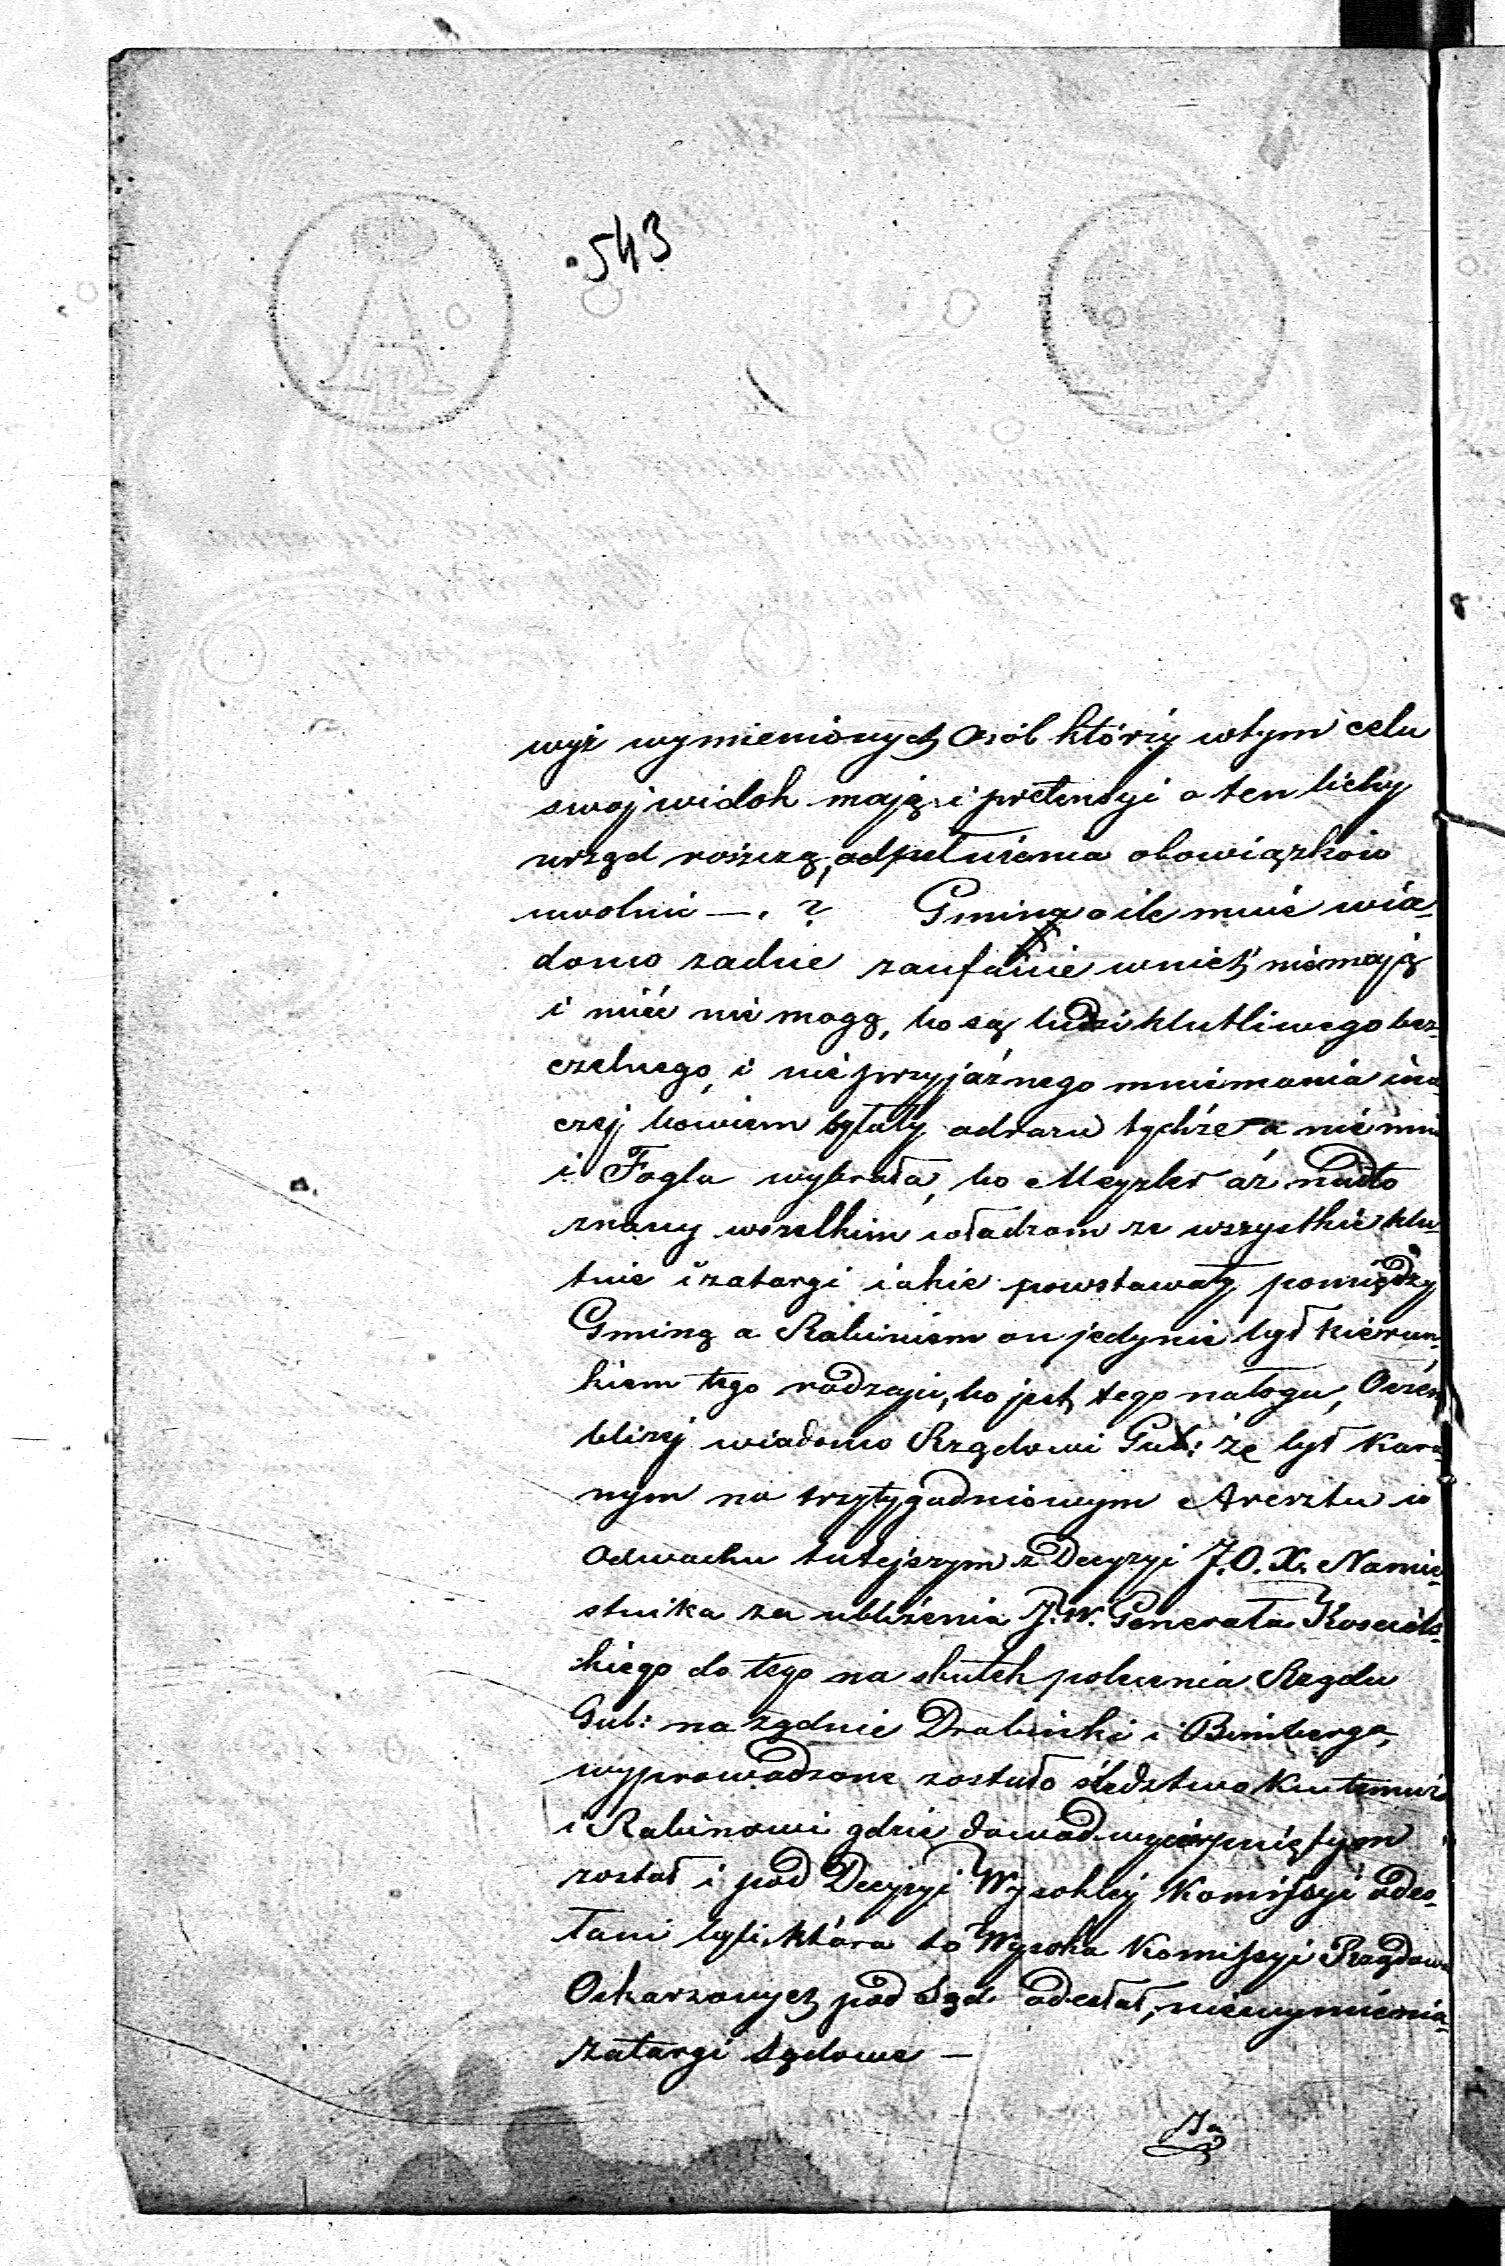 543
wyż wymienionych Osób którzy wtym celu
swoj widok mają i pretensyi o ten lichy
urząd roszczą, od pełnienia obowiązków
uwolnić —. ? Gmina o ile mnie wia-
domo żadne zaufanie w nich niemają
i mieć nie mogą, bo są ludzi kłutliwego bez-
czelnego, i nieprzyjaźnego mniemania ina-
czej bowiem byłaby odrazu tychże a nie mnie
i Fogla wybrała, bo Meyzler aż nadto
znany wszelkim władzom ze wszystkie kłu-
tnie i zatargi iakie powstawały pomiędzy
Gminą a Rabinem on jedynie był kierun-
kiem tego rodzaju, bo jest tego nałogu,
bliżej wiadomo Rządowi Gub: że był kara-
nym na trzytygodniowym Aresztu w
Odwachu tutejszym z Decyzyi J.O.X. Namie-
stnika za ubliżenia J.W. Generała
kiego do tego na skutek polecenia Rządu
Gub: na żądnie Drabinki i Bimberga,
wyprowadzone zostało śledztwo ku temuż
i Rabinowi gdzie dowad
został i pod Decyzyi Wysokiey Komissyi odes-
łani byli, która to Wysoka Komissyi Rządowa
Oskarzonych pod Sąd odesłał, niewymienia-
zatargi Sądowe —
Ja